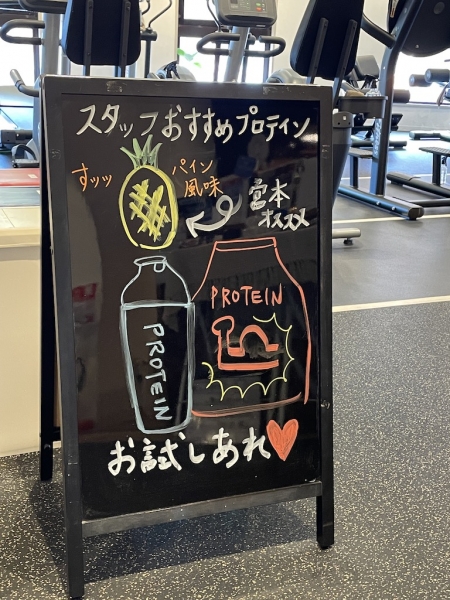 スタッフおすすめプロテイン
すッッ
パイン
風味
宮本
オススメ
PROTEIN
PROTEIN
お試しあれ